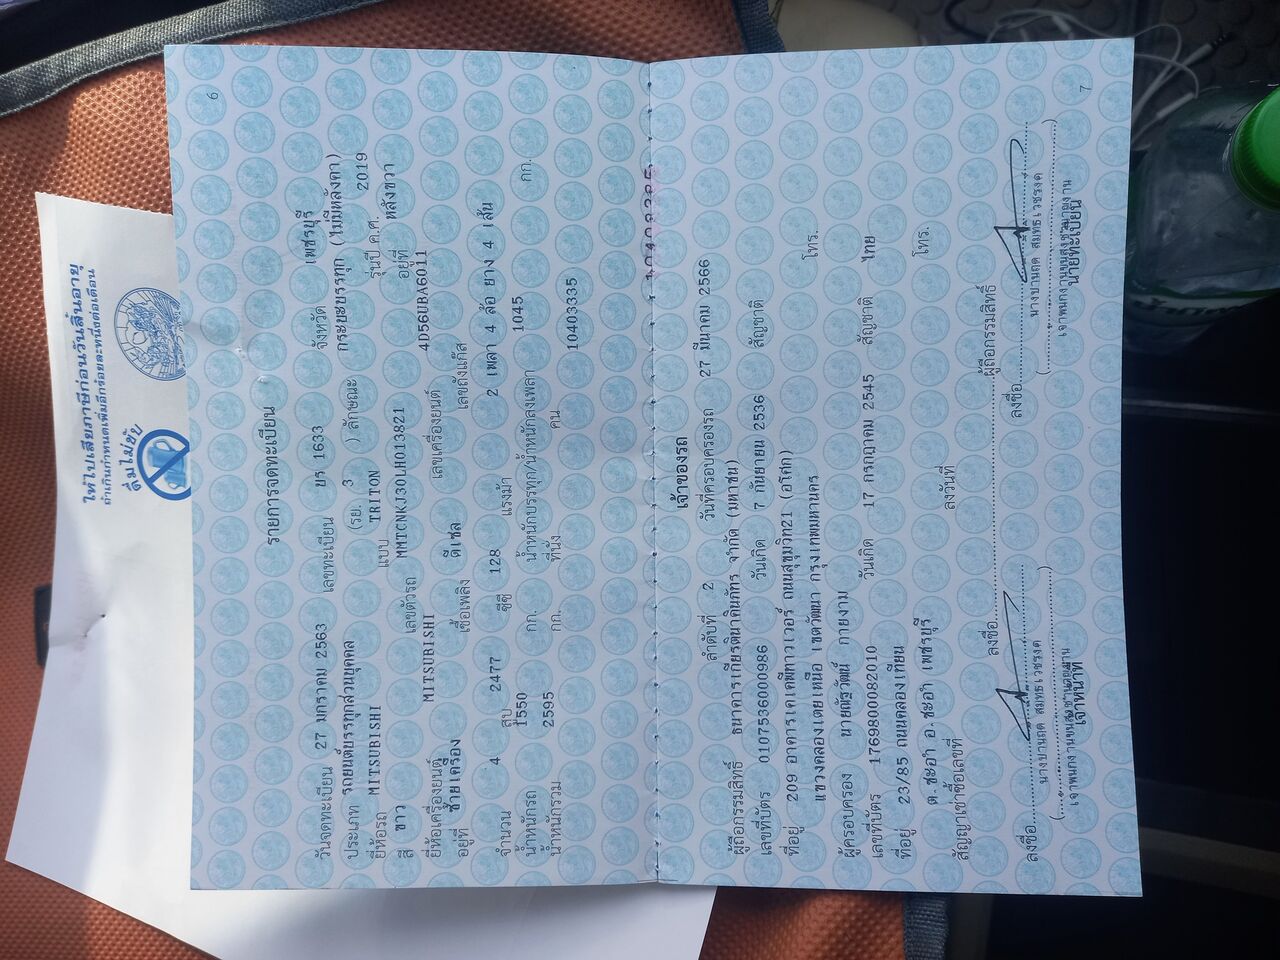 ให้ไปเสียภาษีก่อนวันสิ้นอายุ
ถ้าเกินกำหนดเพิ่มอีกร้อยละหนึ่งต่อเดือน
ดื่มไม่ขับ
6
รายการจดทะเบียน
วันจดทะเบียน 27 มกราคม 2563 เลขทะเบียน บร 1633 จังหวัด เพชรบุรี
ประเภท รถยนต์บรรทุกส่วนบุคคล (รย. 3 ) ลักษณะ กระบะบรรทุก (ไม่มีหลังคา)
ยี่ห้อรถ MITSUBISHI แบบ TRITON รุ่นปี ค.ศ. 2019
สี ขาว เลขตัวรถ MMTCNKJ30LH013821 อยู่ที่ หลังขวา
ยี่ห้อเครื่องยนต์ MITSUBISHI เลขเครื่องยนต์ 4D56UBA6011
อยู่ที่ ซ้ายเครื่อง เชื้อเพลิง ดีเซล เลขถังแก๊ส
จำนวน 4 สูบ 2477 ซีซี 128 แรงม้า 2 เพลา 4 ล้อ ยาง 4 เส้น
น้ำหนักรถ 1550 กก. น้ำหนักบรรทุก/น้ำหนักลงเพลา 1045 กก.
น้ำหนักรวม 2595 กก. ที่นั่ง คน
10403335
7
เจ้าของรถ
ลำดับที่ 2 วันที่ครอบครองรถ 27 มีนาคม 2566
ผู้ถือกรรมสิทธิ์ ธนาคารเกียรตินาคินภัทร จำกัด (มหาชน)
เลขที่บัตร 0107536000986 วันเกิด 7 กันยายน 2536 สัญชาติ
ที่อยู่ 209 อาคารเคเคพีทาวเวอร์ ถนนสุขุมวิท21 (อโศก)
แขวงคลองเตยเหนือ เขตวัฒนา กรุงเทพมหานคร โทร.
ผู้ครอบครอง นายณัฐวัฒน์ กายงาม
เลขที่บัตร 1769800082010 วันเกิด 17 กรกฎาคม 2545 สัญชาติ ไทย
ที่อยู่ 23/85 ถนนคลองเทียน
ต.ชะอำ อ.ชะอำ เพชรบุรี โทร.
สัญญาเช่าซื้อเลขที่ ลงวันที่
ลงชื่อ ผู้ถือกรรมสิทธิ์
ลงชื่อ ลงชื่อ
เจ้าหน้าที่ นายทะเบียน